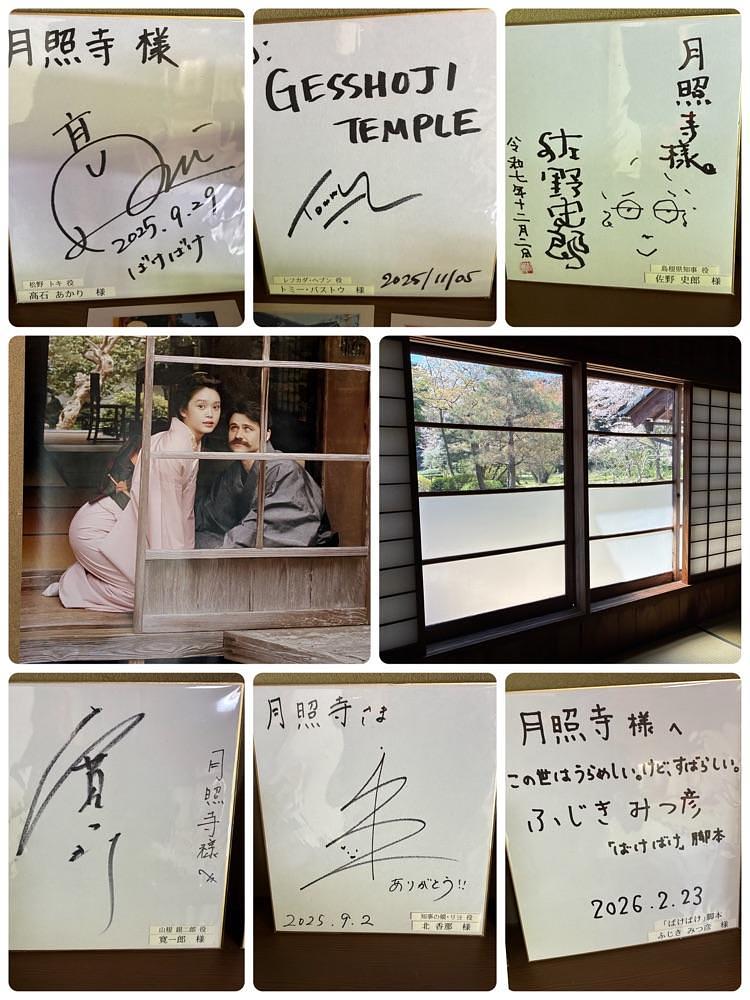 月照寺 様
2025.9.29
ばけばけ
松野 トキ 役
髙石 あかり 様
GESSHOJI
TEMPLE
2025/11/05
レフカダ・ヘブン 役
トミー・バストウ 様
月照寺様。
佐野史郎
令和七年十二月二日
島根県知事 役
佐野 史郎 様
月照寺様へ
山根 銀二郎 役
寛一郎 様
月照寺さま
ありがとう!!
2025.9.2
知事の娘・リヨ 役
北 香那 様
月照寺様へ
この世はうらめしい。けど、すばらしい。
ふじき みつ彦
「ばけばけ」脚本
2026.2.23
「ばけばけ」脚本
ふじき みつ彦 様